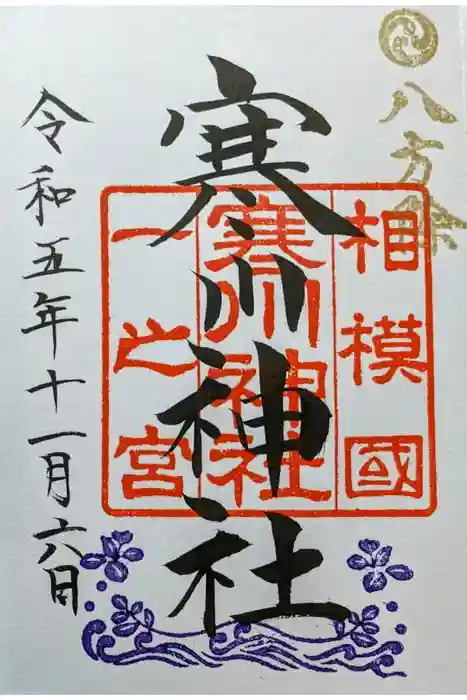 八方除
寒川神社
相模國
寒川神社
一之宮
令和五年十一月六日